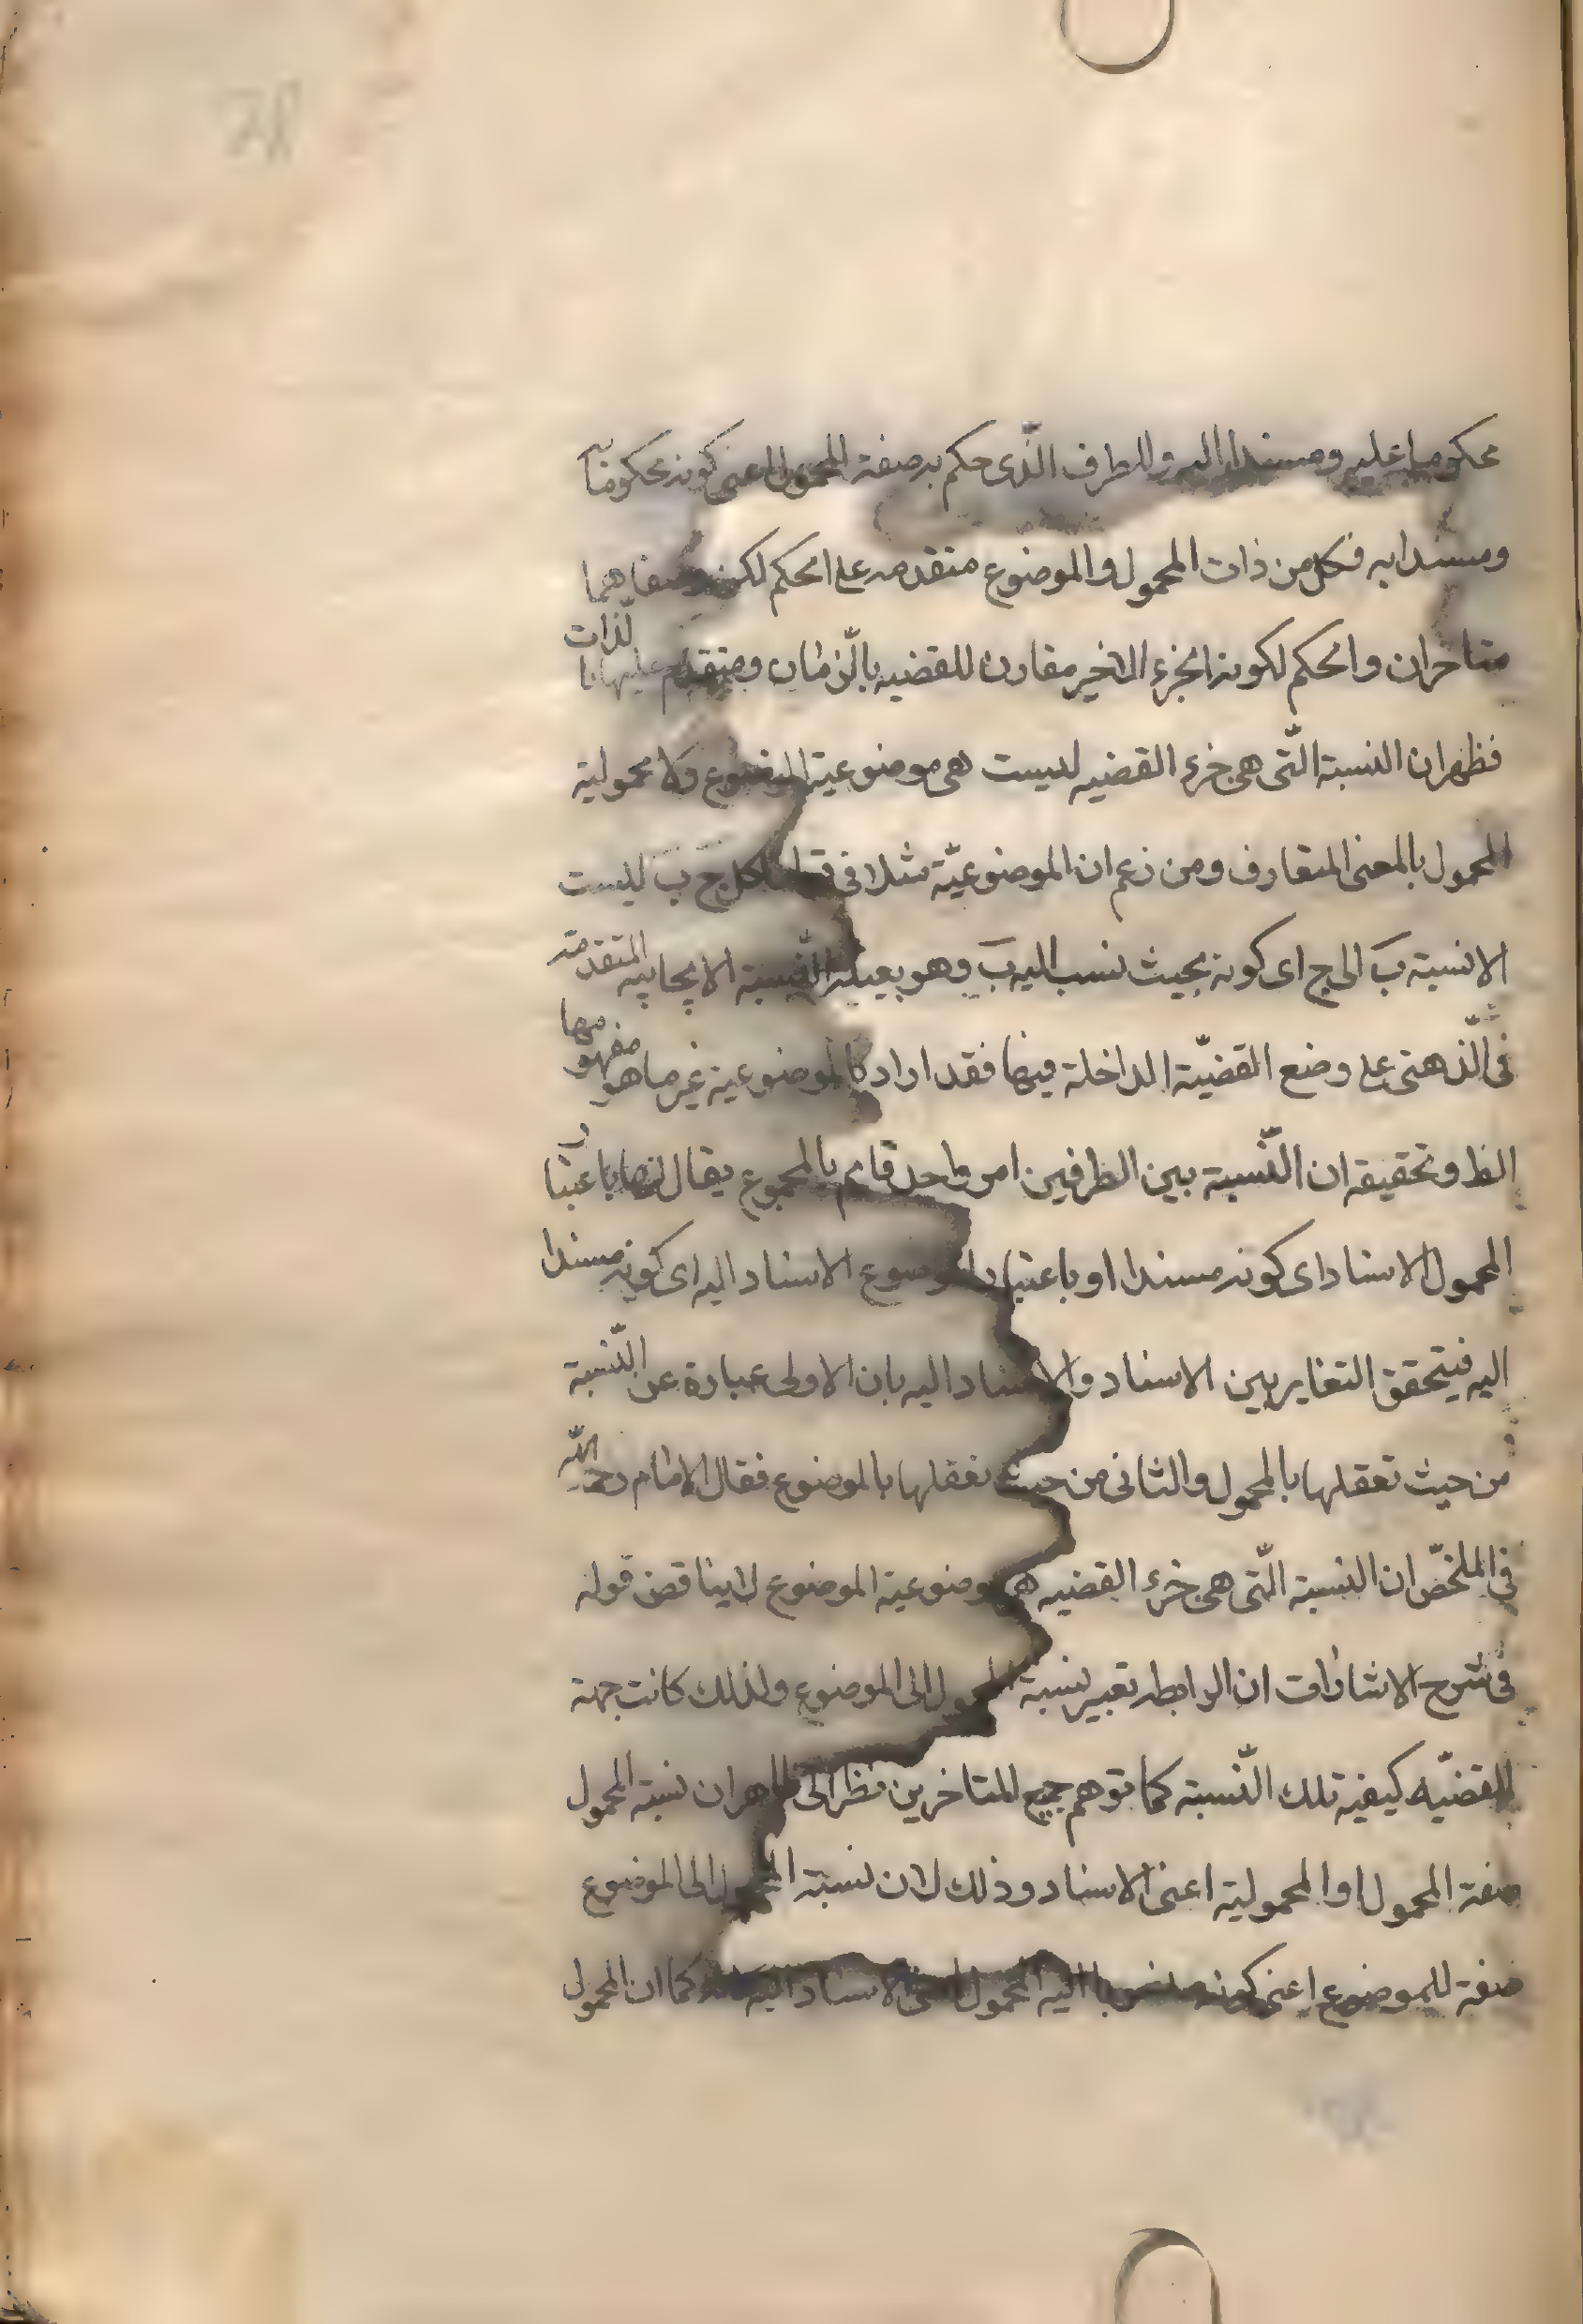 محكوما عليه ومسندا اليه وللطرف الّذى حكم به صفة المحمول اعنى كونه محكوما
ومسندا به فكل من ذات المحمول والموضوع متقدمه على الحكم لكن وصفاهما
متاخران والحكم لكونه الجزء الاخير مقارن للقضيه بالزمان ومتقدم عليها بالذات
فظهر ان النسبة الّتى هى جزء القضيه ليست هى موضوعية الموضوع ولا محمولية
المحمول بالمعنى المتعارف ومن زعم ان الموضوعيّة مثلا فى قولنا كل ج ب ليست
الا نسبة ب الى ج اى كونه بحيث نسب اليه ب وهو بعينه النّسبة الايجابيه المتقدمة
فى الّذهنى على وضع القضيّة الداخلة فيها فقد اراد بالموضوعية غير ما هو مفهومها
الظ وتحقيقه ان النّسبة بين الطرفين امر واحد قائم بالمجموع يقال لها باعتبار
المحمول الاسناد اى كونه مسندا او باعتبار الموضوع الاسناد اليه اى كونه مسندا
اليه فيتحقق التغاير بين الاسناد والاسناد اليه بان الاولى عبارة عن النّسبة
من حيث تعقلها بالمحمول والثانى من حيث تعقلها بالموضوع فقال الامام رحمه اللّه
فى الملخّص ان النسبة الّتى هى جزء القضيه هى موضوعية الموضوع لا يناقض قوله
فى شرح الاشارات ان الرابطه تعبير نسبة المحمول الى الموضوع ولذلك كانت جهة
القضيّه كيفية تلك النّسبة كما توهم جميع المتاخرين نظرا الى ظاهر ان نسبة المحمول
صفة المحمول او المحمولية اعنى الاسناد وذلك لان نسبة المحمول الى الموضوع
صفة للموضوع اعنى كونه منسوبا اليه المحمول اعنى الاسناد اليه كما ان المحمول